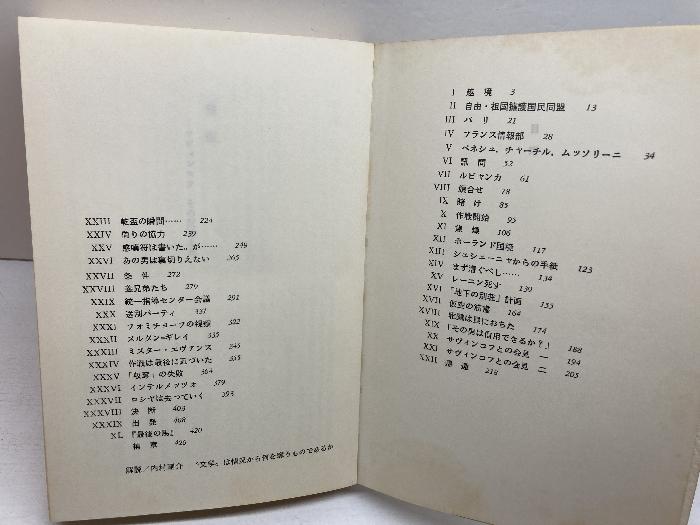 I 越境 3
II 自由・祖国擁護国民同盟 13
III パリ 21
IV フランス情報部 28
V ベネシュ、チャーチル、ムッソリーニ 34
VI 訊問 52
VII ルビャンカ 61
VIII 顔合せ 78
IX 賭け 85
X 作戦開始 95
XI 焦燥 106
XII ポーランド国境 117
XIII シェシェーニャからの手紙 123
XIV まず潰ぐべし…… 134
XV レーニン死す 139
XVI 「地下の別荘」計画 155
XVII 仮面の 164
XVIII 牝鶏は罠におちた 174
XIX 「その男は信用できるか?」 188
XX サヴィンコフとの会見 一 194
XXI サヴィンコフとの会見 二 205
XXII 218
XXIII 乾盃の瞬間…… 224
XXIV 偽りの協力 239
XXV 感嘆符は書いた。が…… 249
XXVI あの男は裏切りえない 265
XXVII 条件 272
XXVIII 義兄弟たち 279
XXIX 統一指導センター会議 291
XXX 送別パーティ 337
XXXI フォミチョーフの視察 322
XXXII メルダン=ギレイ 335
XXXIII ミスター・エヴァンス 345
XXXIV 作戦は最後に近づいた 355
XXXV 「奴専」の失敗 364
XXXVI インテルメッツォ 379
XXXVII ロシヤは去っていく 393
XXXVIII 決断 403
XXXIX 出発 408
XL 『最後の馬』 420
補章 426
解説/内村剛介 “文学”は情況から何を奪うものであるか